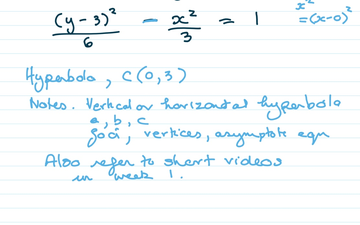 (y-3)²/6 - x²/3 = 1
x² = (x-0)²
Hyperbola, C(0,3)
Notes. Vertical or horizontal hyperbola
a, b, c
foci, vertices, asymptote eqn
Also refer to short videos
in week 1.